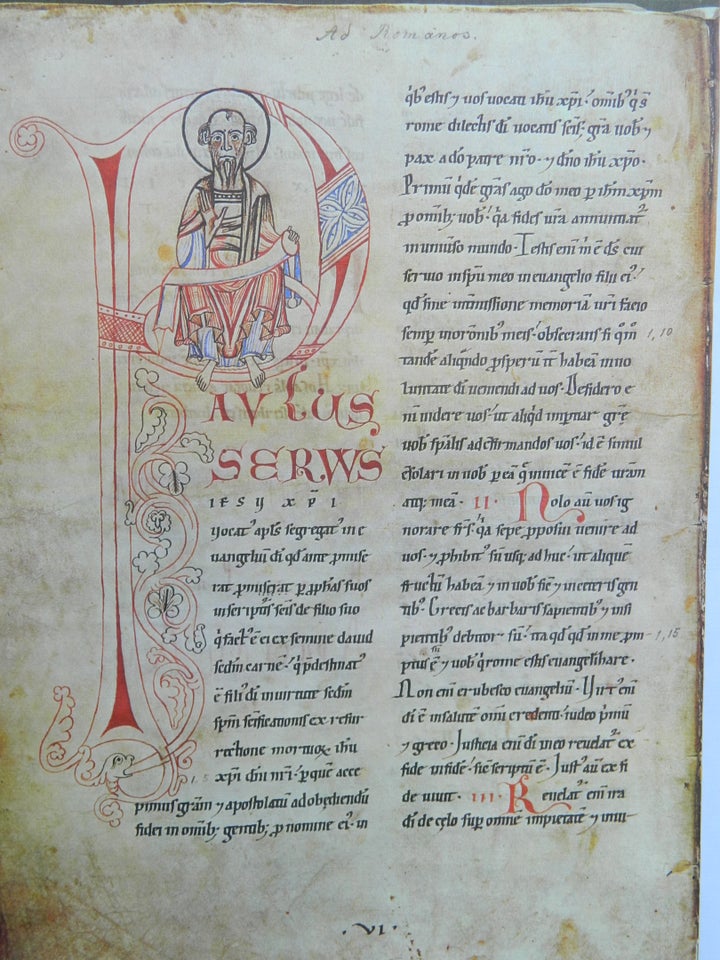 Ad Romanos.
PAVLUS
SERVVS
IESV XP̄I
uocat᾽ apl̄s segregat᾽ in e
uangeliū dī qd̄ ante p̱mise
rat p̱miserat p̱ p̱ph̄as suos
in scriptis sc̄īs de filio suo
q̇ fact᾽ ē ei ex semine dauid
sc̄dm carnē · q̇ p̱destinat᾽
ē fili᾽ dī in uirtute sc̄dm
sp̄m sc̄ificationis ex resur
rectione mortuoꝝ ih̄u
xp̄i dn̄i nr̄i · p̱ quē acce 1,5
pimus gr̄am ⁊ apostolatū ad obediendū
fidei in omīb; gentib; p̱ nomine ei᾽ · in
q̇b᾽ estis ⁊ uos uocati ih̄u xp̄i · omīb᾽ q̇ s̄
rome dilectis dī uocatis sc̄īs · gr̄a uob᾽ ⁊
pax a dō patre nr̄o · ⁊ dn̄o ih̄u xp̄o ·
Primū q̇dē gr̄as ago dō meo p̱ ih̄m xp̄m
p̱ omīb; uob᾽ · q̇a fides ur̄a annuntiat᾽
in uniuerso mundo · Testis eni m̄ ē ds̄ cui
seruo in sp̄u meo in euangelio filii ei᾽ ·
qd̄ sine intmissione memoriā ur̄i facio
semp̱ in orōnib᾽ meis · obsecrans si q̊m̊ 1,10
tandē aliq̇ndo p̱sperū it̄ habeā in uo
luntate dī ueniendi ad uos · Desidero e
nī uidere uos · ut aliq̇d imp̱tiar gr̄ē
uob᾽ sp̄alis ad cōfirmandos uos · id ē simul
cōsolari in uob᾽ p̱ eā q̇ inuicē ē fidē ur̄am
atq; meā · II · Nolo aū uos ig
norare fr̄s · q̇a sepe p̱posui uenire ad
uos · ⁊ p̱hibit᾽ sū usq; ad huc · ut aliquē
fructū habeā ⁊ in uob᾽ sic̄ ⁊ in ceteris gen
tib᾽ · Grecis ac barbaris sapientib᾽ ⁊ insi
pientib᾽ debitor sū · ita qd̄ qd̄ in me p̱m 1,15
ptus ē ⁊ uob᾽ q̇ rome estis euangelizare ·
Non enī erubesco euangeliū · Virt᾽ enī
dī ē in salutē omī credenti · iudeo p̱imū
⁊ greco · Justicia enī dī in eo reuelat᾽ ex
fide in fidē · sic̄ scriptū ē · Just᾽ aū ex fi
de uiuit · III · Reuelat᾽ enī ira
dī de cęlo sup̱ omnē impietatē ⁊ iniu
· VI ·